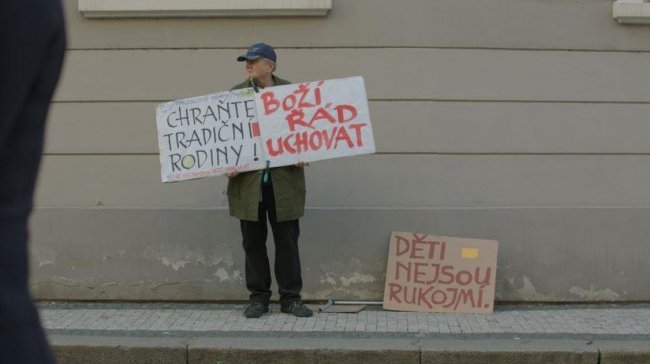 CHRAŇTE
TRADIČNÍ
RODINY!
BOŽÍ
ŘÁD
UCHOVAT
DĚTI
NEJSOU
RUKOJMÍ.